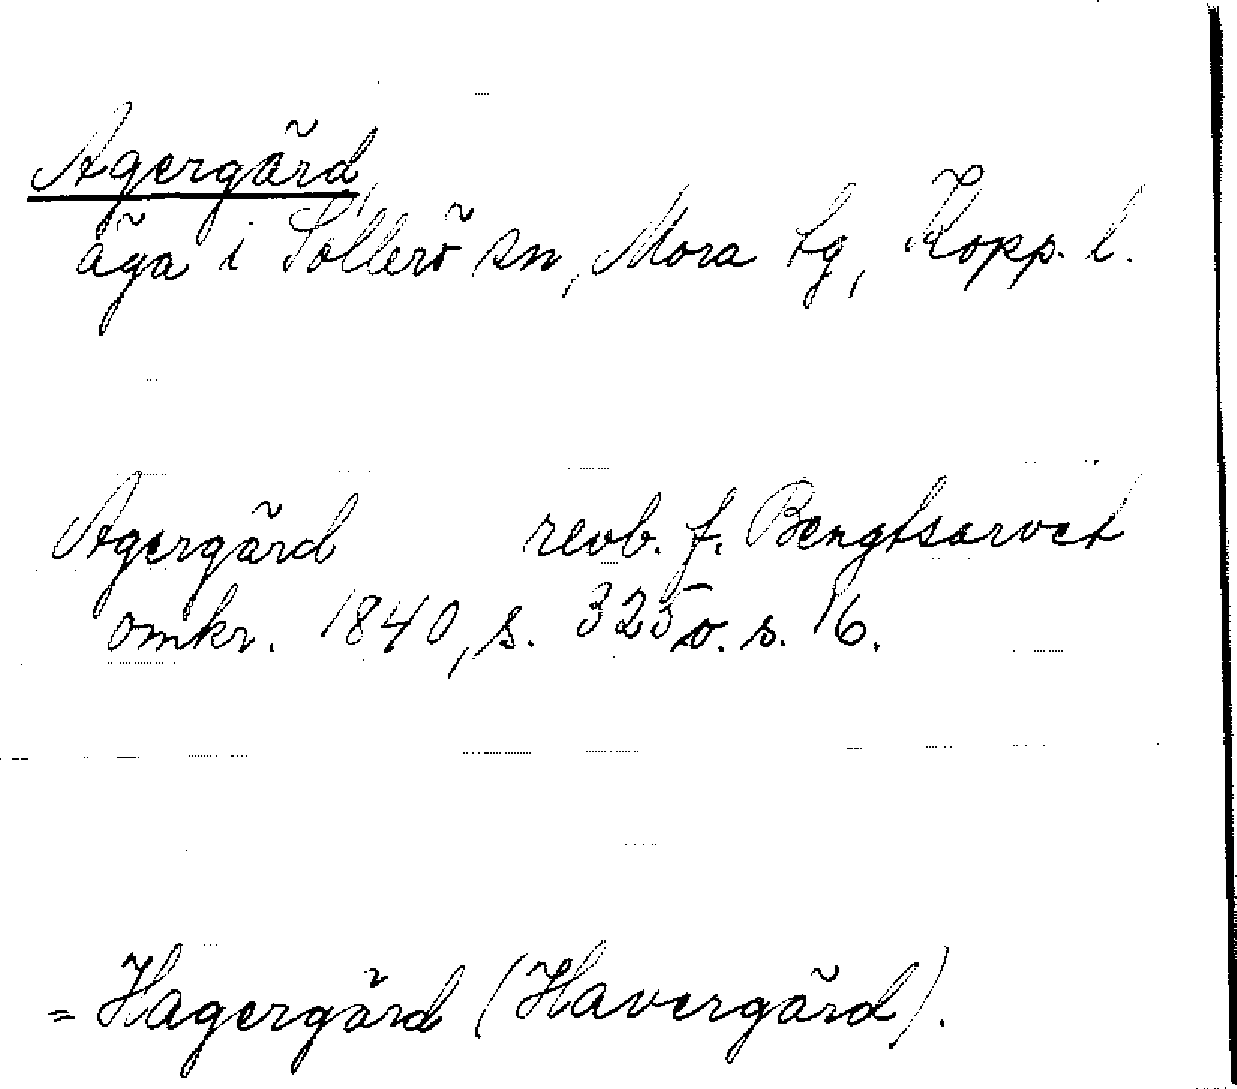 Agergärd,
äga i Sollerö sn, Mora tg, Kopp. l.
Agergärd revb. f. Bengtsarvet
omkr. 1840, s. 325 o. s. 16.
= Hagergärd (Havergärd).